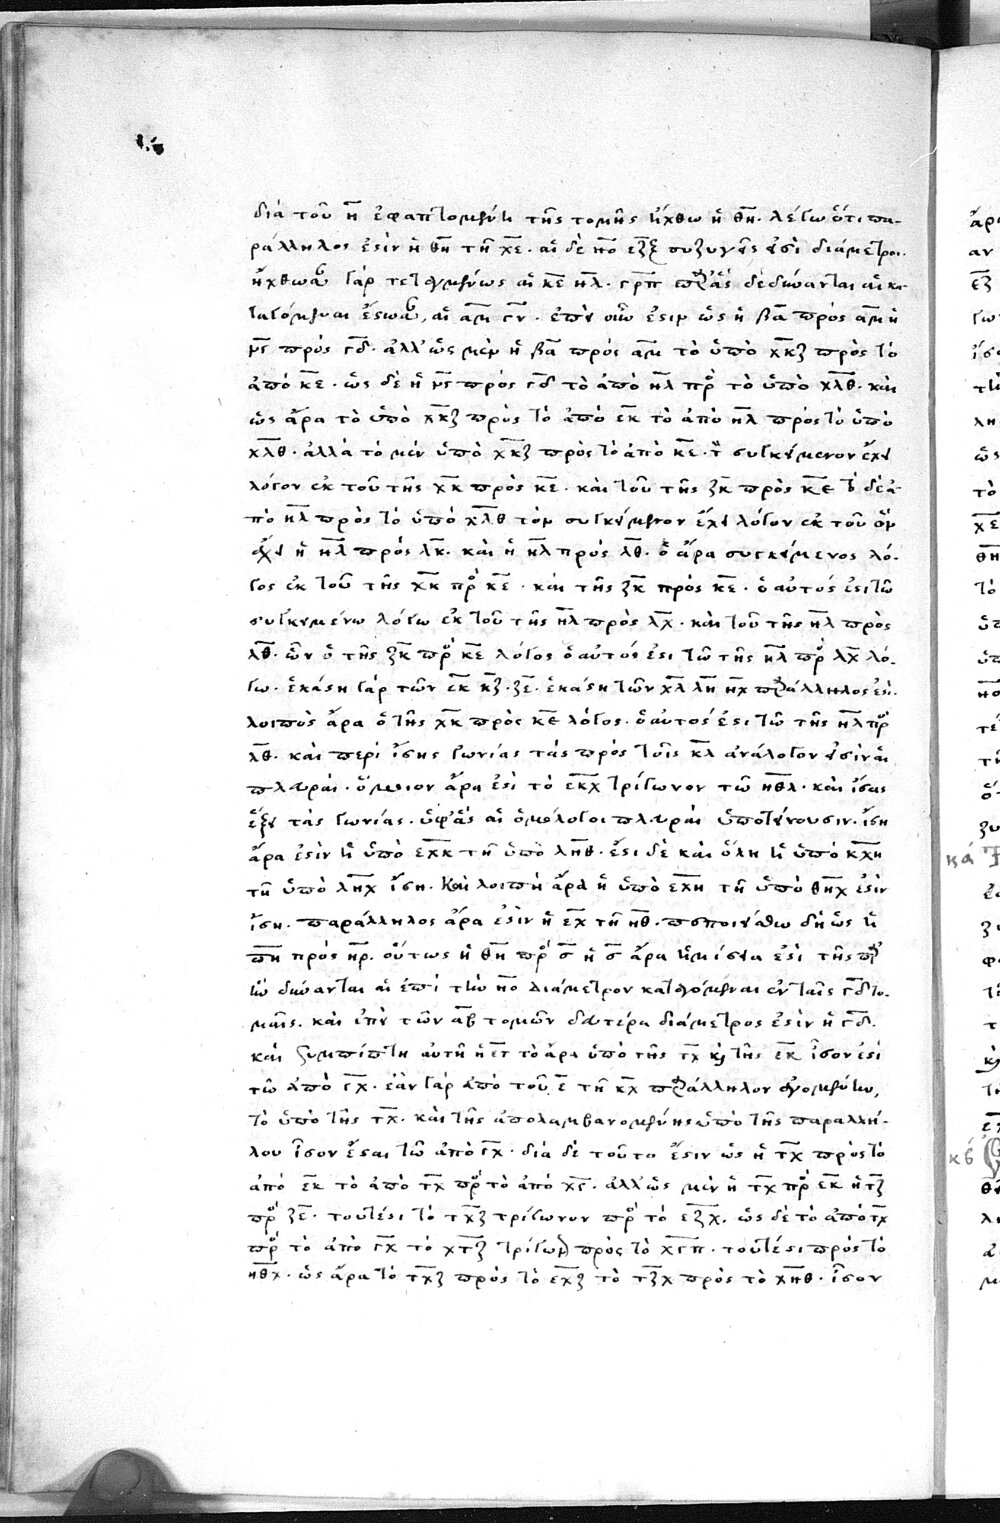 διὰ τοῦ η ἐφαπτομένη τῆς τομῆς ἤχθω ἡ θη. λέγω ὅτι πα-
ράλληλος ἐστὶν ἡ θη τῇ χε. αἱ δὲ ηο εξξ συζυγεῖς εἰσὶ διάμετροι.
ἤχθωσαν γὰρ τεταγμένως αἱ κε ηλ. γρπ παρ' ἃς δὲ δύνανται αἱ κα-
ταγόμεναι ἔστωσαν, αἱ αμ γν. ἐπεὶ οὖν ἐστιν ὡς ἡ βα πρὸς αμ ἡ
νγ πρὸς γδ. ἀλλ' ὡς μὲν ἡ βα πρὸς αμ τὸ ὑπὸ χκζ πρὸς τὸ
ἀπὸ κε. ὡς δὲ ἡ νγ πρὸς γδ τὸ ἀπὸ ηλ πρὸς τὸ ὑπὸ χλθ. καὶ
ὡς ἄρα τὸ ὑπὸ χκζ πρὸς τὸ ἀπὸ εκ τὸ ἀπὸ ηλ πρὸς τὸ ὑπὸ
χλθ. ἀλλὰ τὸ μὲν ὑπὸ χκζ πρὸς τὸ ἀπὸ κε. τὸν συγκείμενον ἔχει
λόγον ἐκ τοῦ τῆς χκ πρὸς κε. καὶ τοῦ τῆς ζκ πρὸς κε τὸ δὲ ἀ-
πὸ ηλ πρὸς τὸ ὑπὸ χλθ τὸν συγκείμενον ἔχει λόγον ἐκ τοῦ ὃν
ἔχει ἡ ηλ πρὸς λκ. καὶ ἡ ηλ πρὸς λθ. ὁ ἄρα συγκείμενος λό-
γος ἐκ τοῦ τῆς χκ πρὸς κε. καὶ τῆς ζκ πρὸς κε. ὁ αὐτός ἐστι τῷ
συγκειμένω λόγω ἐκ τοῦ τῆς ηλ πρὸς λχ. καὶ τοῦ τῆς ηλ πρὸς
λθ. ὧν ὁ τῆς ζκ πρὸς κε λόγος ὁ αὐτός ἐστι τῶ τῆς ηλ πρὸς λχ λό-
γω. ἑκάστη γὰρ τῶν εκ κζ. ζε. ἑκάστη τῶν χλ λη ηχ παράλληλος ἐστι.
λοιπὸς ἄρα ὁ τῆς χκ πρὸς κε λόγος. ὁ αὐτός ἐστι τῶ τῆς ηλ πρὸς
λθ. καὶ περὶ ἴσης γωνίας τὰς πρὸς τοῖς κλ ἀνάλογον εἰσὶν αἱ
πλευραί. ὅμοιον ἄρα ἐστὶ τὸ εκχ τρίγωνον τῶ ηθλ. καὶ ἴσας
ἕξει τὰς γωνίας. ὑφ' ἃς αἱ ὁμόλογοι πλευραὶ ὑποτείνουσιν. ἴση
ἄρα ἐστὶν ἡ ὑπὸ εχκ τῇ ὑπὸ ληθ. ἔστι δὲ καὶ ὅλη ἡ ὑπὸ κχη
τῇ ὑπὸ ληχ ἴση. καὶ λοιπὴ ἄρα ἡ ὑπὸ εχη τῇ ὑπὸ θηχ ἐστὶν
ἴση. παράλληλος ἄρα ἐστὶν ἡ εχ τῇ ηθ. πεποιήσθω δὴ ὡς ἡ
πη πρὸς ηρ. οὕτως ἡ θη πρὸς ς ἡ ς ἄρα ἡμίσεια ἐστὶ τῆς παρ'
ἣν δύνανται αἱ ἐπὶ τὴν ηο διάμετρον καταγόμεναι ἐν ταῖς γδ το-
μαῖς. καὶ ἐπεὶ τῶν αβ τομῶν δευτέρα διάμετρος ἐστὶν ἡ γδ.
καὶ ξυμπίπτει αὐτῇ ἡ ετ τὸ ἄρα ὑπὸ τῆς τχ καὶ τῆς εκ ἴσον ἐστὶ
τῶ ἀπὸ γχ. ἐὰν γὰρ ἀπὸ τοῦ ε τῇ κχ παράλληλον ἀγομένην,
τὸ ὑπὸ τῆς τχ. καὶ τῆς ἀπολαμβανομένης ὑπὸ τῆς παραλλή-
λου ἴσον ἔσται τῶ ἀπὸ γχ. διὰ δὲ τοῦτο ἔστιν ὡς ἡ τχ πρὸς τὸ
ἀπὸ εκ τὸ ἀπὸ τχ πρὸς τὸ ἀπὸ χγ. ἀλλ' ὡς μὲν ἡ τχ πρὸς εκ ἡ τζ
πρὸς ζε. τουτέστι τὸ τχζ τρίγωνον πρὸς τὸ εζχ. ὡς δὲ τὸ ἀπὸ τχ
πρὸς τὸ ἀπὸ γχ τὸ χτζ τρίγωνον πρὸς τὸ χγπ. τουτέστι πρὸς τὸ
ηθχ. ὡς ἄρα τὸ τχζ πρὸς τὸ εχζ τὸ τζχ πρὸς τὸ χηθ. ἴσον
κα
κβ